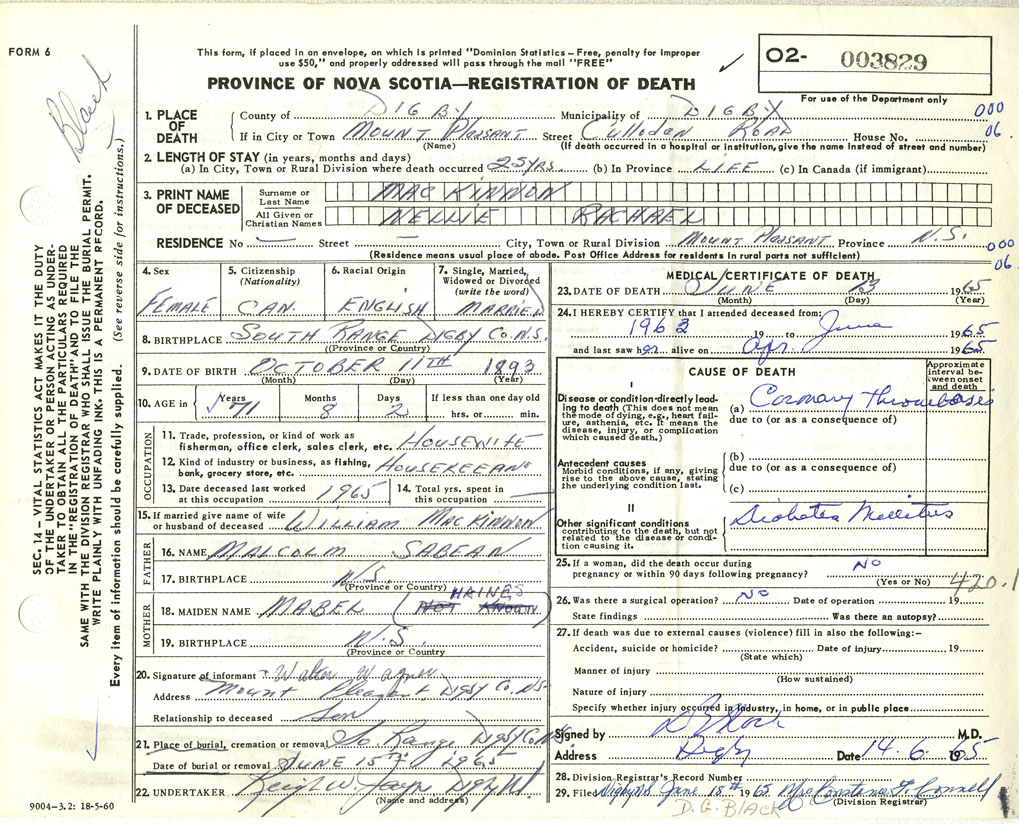 FORM 6
This form, if placed in an envelope, on which is printed "Dominion Statistics – Free, penalty for improper
use $50," and properly addressed will pass through the mail "FREE"
PROVINCE OF NOVA SCOTIA—REGISTRATION OF DEATH
O2- 003829
For use of the Department only
Black
SEC. 14 – VITAL STATISTICS ACT MAKES IT THE DUTY
OF THE UNDERTAKER OR PERSON ACTING AS UNDER-
TAKER TO OBTAIN ALL THE PARTICULARS REQUIRED
IN THE "REGISTRATION OF DEATH" AND TO FILE THE
SAME WITH THE DIVISION REGISTRAR WHO SHALL ISSUE THE BURIAL PERMIT.
WRITE PLAINLY WITH UNFADING INK. THIS IS A PERMANENT RECORD.
Every item of information should be carefully supplied. (See reverse side for instructions.)
1. PLACE OF DEATH
County of DIGBY Municipality of DIGBY 000
If in City or Town MOUNT PLEASANT Street Culloden ROAD House No. 06
(Name) (If death occurred in a hospital or institution, give the name instead of street and number)
2. LENGTH OF STAY (in years, months and days)
(a) In City, Town or Rural Division where death occurred 25 YRS. (b) In Province LIFE (c) In Canada (if immigrant)
3. PRINT NAME OF DECEASED
Surname or Last Name MAC KINNON
All Given or Christian Names NELLIE RACHAEL
RESIDENCE No — Street — City, Town or Rural Division MOUNT PLEASANT Province N.S. 000
(Residence means usual place of abode. Post Office Address for residents in rural parts not sufficient) 06.
4. Sex FEMALE
5. Citizenship (Nationality) CAN.
6. Racial Origin ENGLISH
7. Single, Married, Widowed or Divorced (write the word) MARRIED
8. BIRTHPLACE SOUTH RANGE DIGBY CO. N.S.
(Province or Country)
9. DATE OF BIRTH OCTOBER 11TH 1893
(Month) (Day) (Year)
10. AGE in Years 71 Months 8 Days 2 If less than one day old hrs. or min.
OCCUPATION
11. Trade, profession, or kind of work as fisherman, office clerk, sales clerk, etc. HOUSEWIFE
12. Kind of industry or business, as fishing, bank, grocery store, etc. HOUSEKEEANG
13. Date deceased last worked at this occupation 1965
14. Total yrs. spent in this occupation —
15. If married give name of wife or husband of deceased WILLIAM MACKINNON
FATHER
16. NAME MALCOLM SABEAN
17. BIRTHPLACE N.S.
(Province or Country)
MOTHER
18. MAIDEN NAME MABEL (NOT KNOWN) HAINES
19. BIRTHPLACE N.S.
(Province or Country)
20. Signature of informant Walter Wagner
Address Mount Pleasant Digby Co. NS-
Relationship to deceased Son
21. Place of burial, cremation or removal So Range, Digby Co NS
Date of burial or removal JUNE 15TH 1965
22. UNDERTAKER
(Name and address)
9004-3.2: 18-5-60
MEDICAL CERTIFICATE OF DEATH
23. DATE OF DEATH JUNE 13 1965
(Month) (Day) (Year)
24. I HEREBY CERTIFY that I attended deceased from:
1963 19 to June 1965
and last saw her alive on Apr. 1965
CAUSE OF DEATH
Approximate interval between onset and death
I
Disease or condition directly leading to death (This does not mean the mode of dying, e.g., heart failure, asthenia, etc. It means the disease, injury, or complication which caused death.)
(a) Coronary thrombosis
due to (or as a consequence of)
Antecedent causes
Morbid conditions, if any, giving rise to the above cause, stating the underlying condition last.
(b)
due to (or as a consequence of)
(c)
II
Other significant conditions contributing to the death, but not related to the disease or condition causing it.
Diabetes Mellitus
25. If a woman, did the death occur during pregnancy or within 90 days following pregnancy? NO
(Yes or No) 420.1
26. Was there a surgical operation? NO Date of operation 19
State findings Was there an autopsy?
27. If death was due to external causes (violence) fill in also the following:–
Accident, suicide or homicide? Date of injury 19
(State which)
Manner of injury
(How sustained)
Nature of injury
Specify whether injury occurred in industry, in home, or in public place
Signed by M.D.
Address Digby Date 14. 6. 1965
28. Division Registrar's Record Number
29. Filed June 18th 1965 Mrs Constance F. Connell
(Division Registrar)
D. G. BLACK